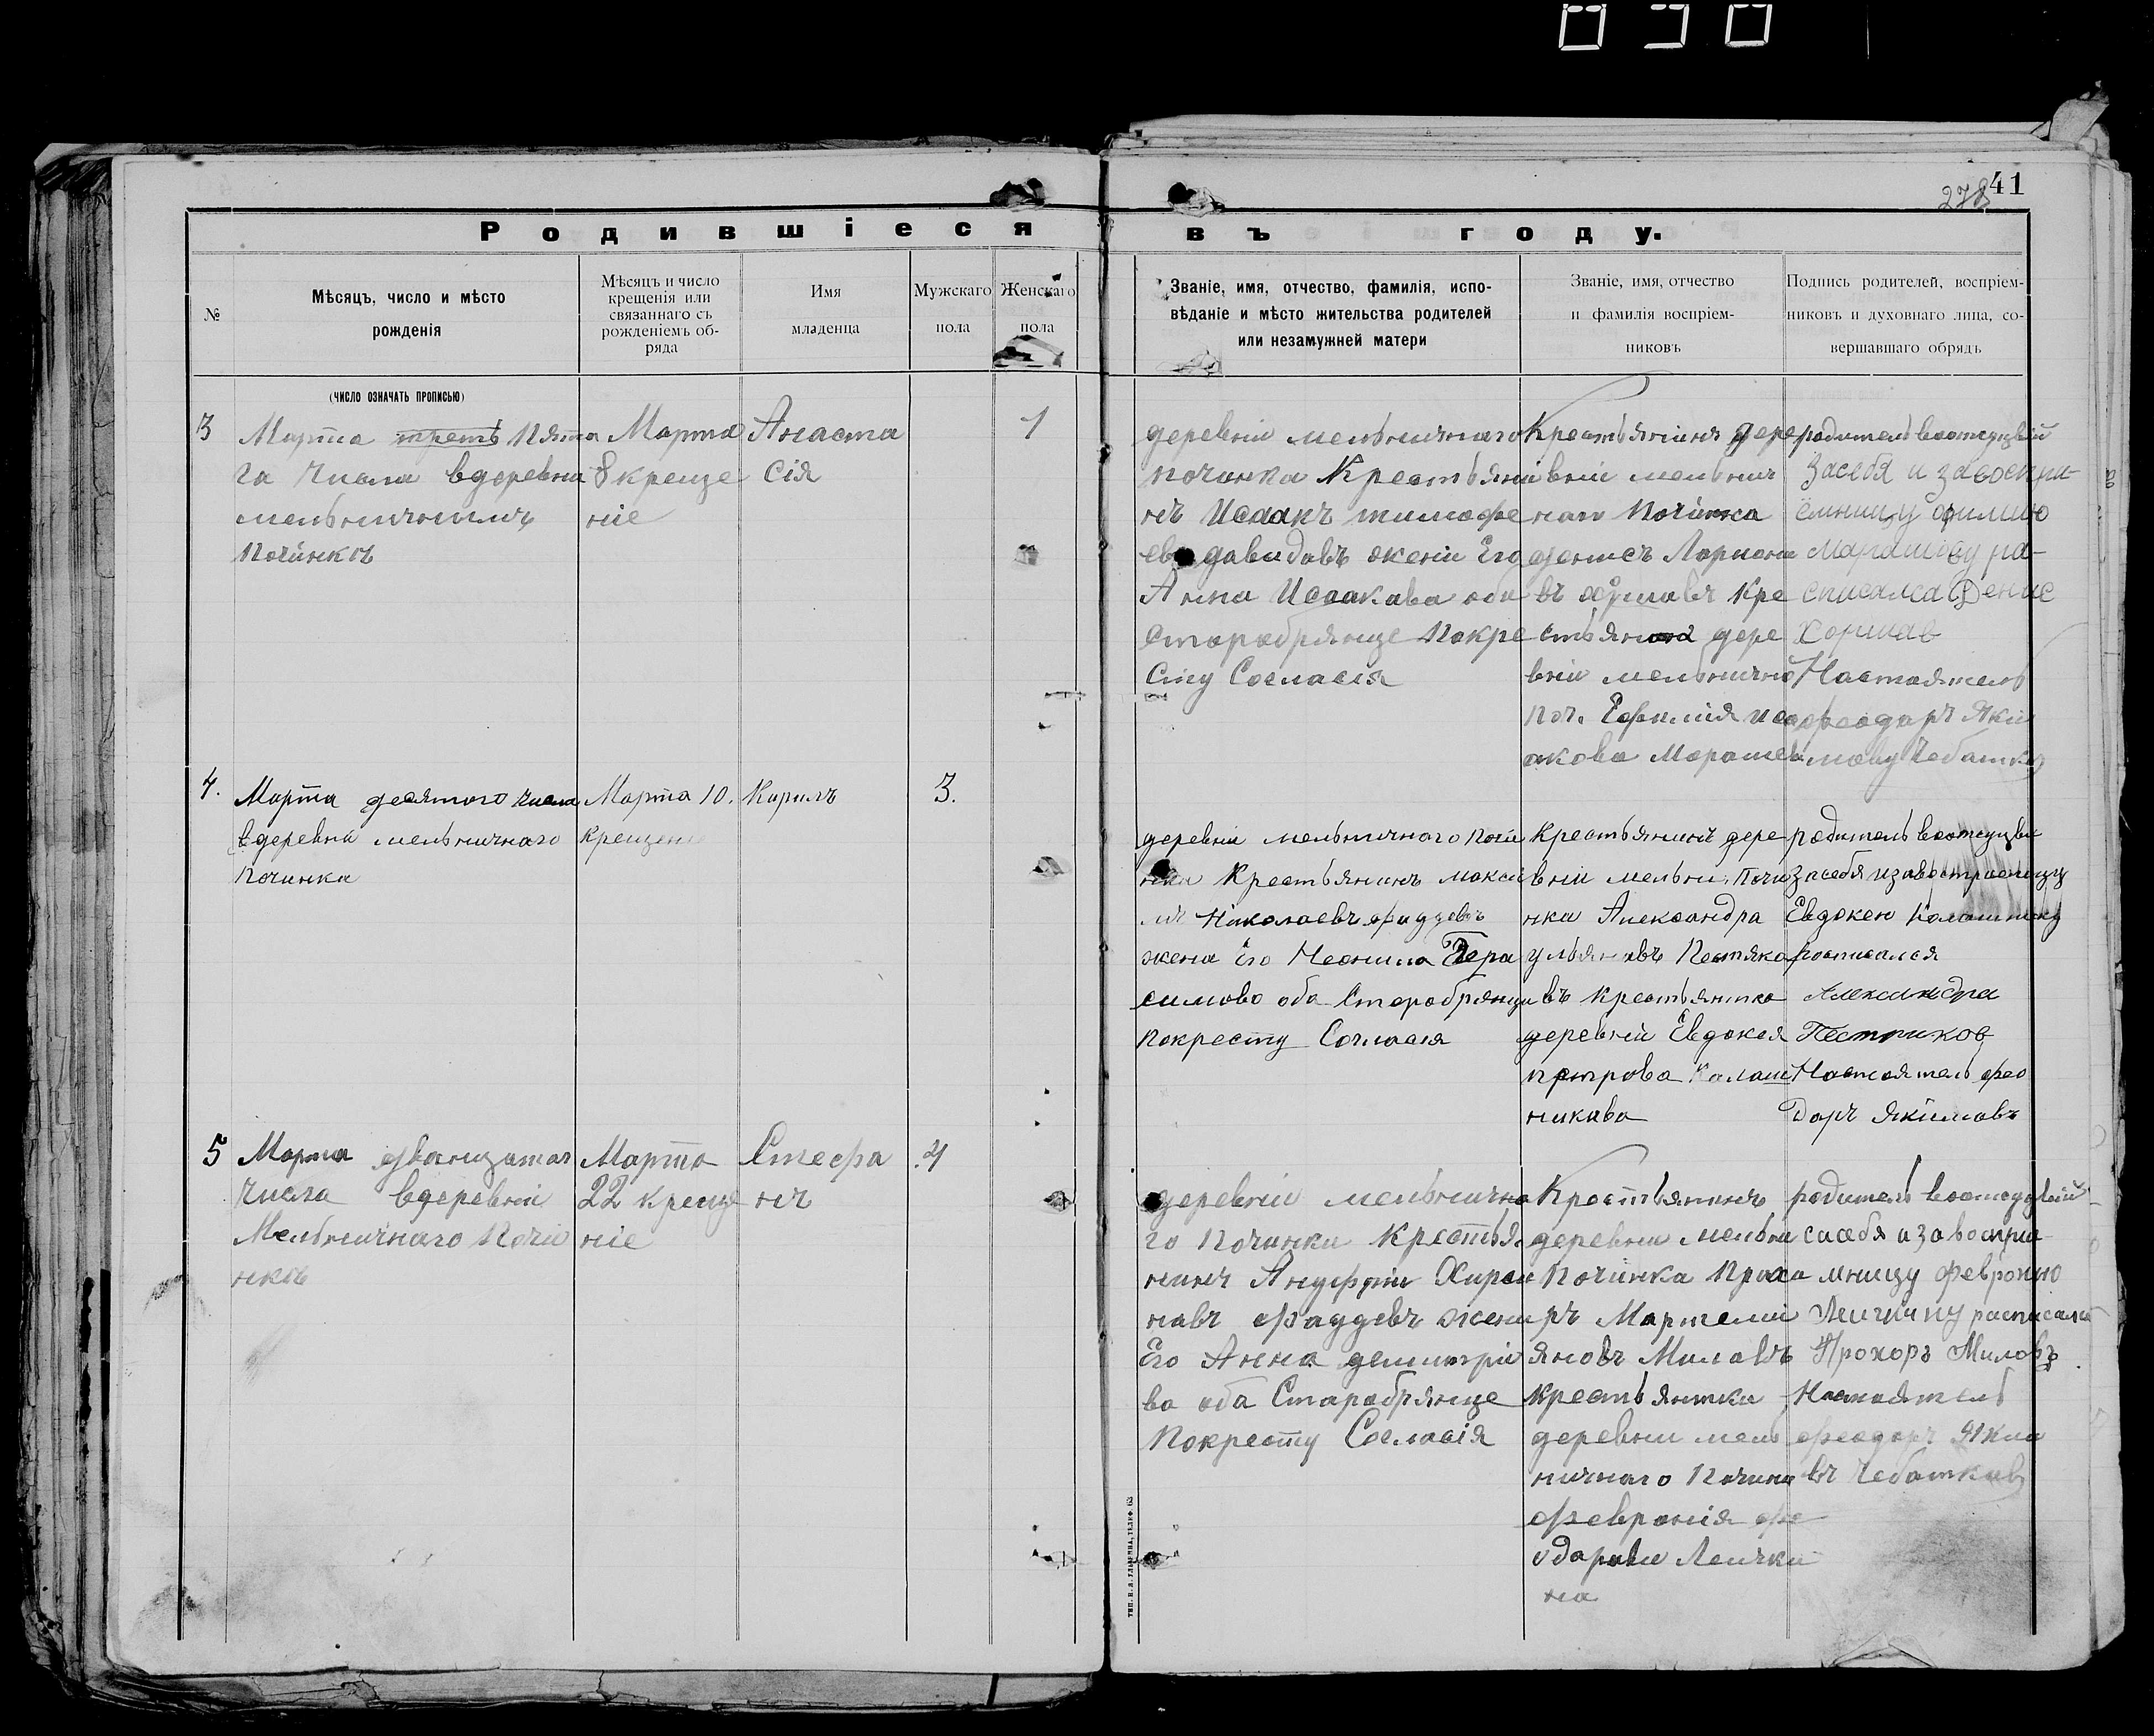 278
41
Родившіеся въ году.
№
Мѣсяцъ, число и мѣсто
рожденія
Мѣсяцъ и число
крещенія или
связаннаго съ
рожденіемъ об-
ряда
Имя
младенца
Мужскаго
пола
Женскаго
пола
Званіе, имя, отчество, фамилія, испо-
вѣданіе и мѣсто жительства родителей
или незамужней матери
Званіе, имя, отчество
и фамилія воспріем-
никовъ
Подпись родителей, воспріем-
никовъ и духовнаго лица, со-
вершавшаго обрядъ
(число означать прописью)
3
Марта треть Пята
га числа вдеревна
мельничнымъ
Починкъ
Марта
8 креще
ніе
Анаста
сія
1
деревніи мельничнаго
починка Крестьяни
нъ Исаакъ тимофе
ев давидовъ жени Его
Анна Исаакава оба
Старобрянце Покре
сту Согласія
Крестьянинъ дере
вніи мельнич
наго Починка
денисъ Лариона
въ Кре
стьянка дере
вніи мельнично
поч. Ефимія иса
акова
родитель воотсуцвій
Засебя и завоспри-
ёмницу фимию
ра-
списался Денис
Хоршав
Настаятель
феодаръ Яки
4.
Марта десятого числа
вдеревни мельничнаго
Починка
Марта 10.
Крещени
Кирилъ
3.
деревни мельничного Почи
нка Крестьянинъ макси
мъ Николаевъ фаддевъ
жена Его Неонила Гера
симово оба Старобрянци
покресту Согласія
Крестьянинъ дере
вніи мельни. Почи
нка Александра
ульяновъ Пестяко
въ крестьянка
деревній Евдокея
петрова Калаш
никава
родитель воотсуцви
засебя
Евдокею
росписался
Александра
Пестриков
Настаятель фео
даръ Якимовъ
5
Марта двацатаг
числа вдеревніи
Мельничнаго Почи
нкъ
Марта
22 креще
ніе
Стефа
нъ
4
деревніи мельнична
го Починки Крестья
нинъ
навъ Фаддевъ жени
Его Анна демитріи
ва оба Старобрянце
Покресту Согласія
Крестьянинъ
деревни мельни
Починка Праха
ръ Мартемі
яновъ Милавъ
крестьянка
деревни мель
ничнаго Почина
февронія фе
одарави Леички
на
родитель воотсуцвій
сасебя изавоспри-
мницу февронию
Леичкину расписался
Прохоръ Миловъ
Настаятель
феодаръ Яким
въ Чебаткав